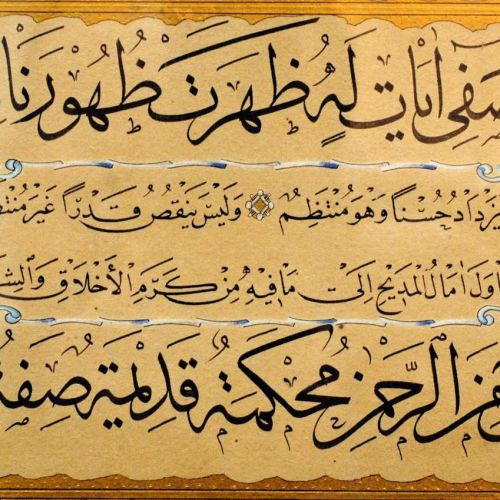 صفي اٰيَاتٍ لَهُ ظَهَرَتْ ظُهُورَ نَا
يَزْدَادُ حُسْنًا وَهُوَ مُنْتَظِمٌ وَلَيْسَ يَنْقُصُ قَدْرًا غَيْرَ مُنْتَظ
اوَلَ اٰمَالُ الْمَدِيحِ اِلٰى مَا فِيهِ مِنْ كَرَمِ الْأَخْلَاقِ وَالشِّ
مِنَ الرَّحْمٰنِ مُحْكَمَةٌ قَدِيمَةٌ صِفَةُ